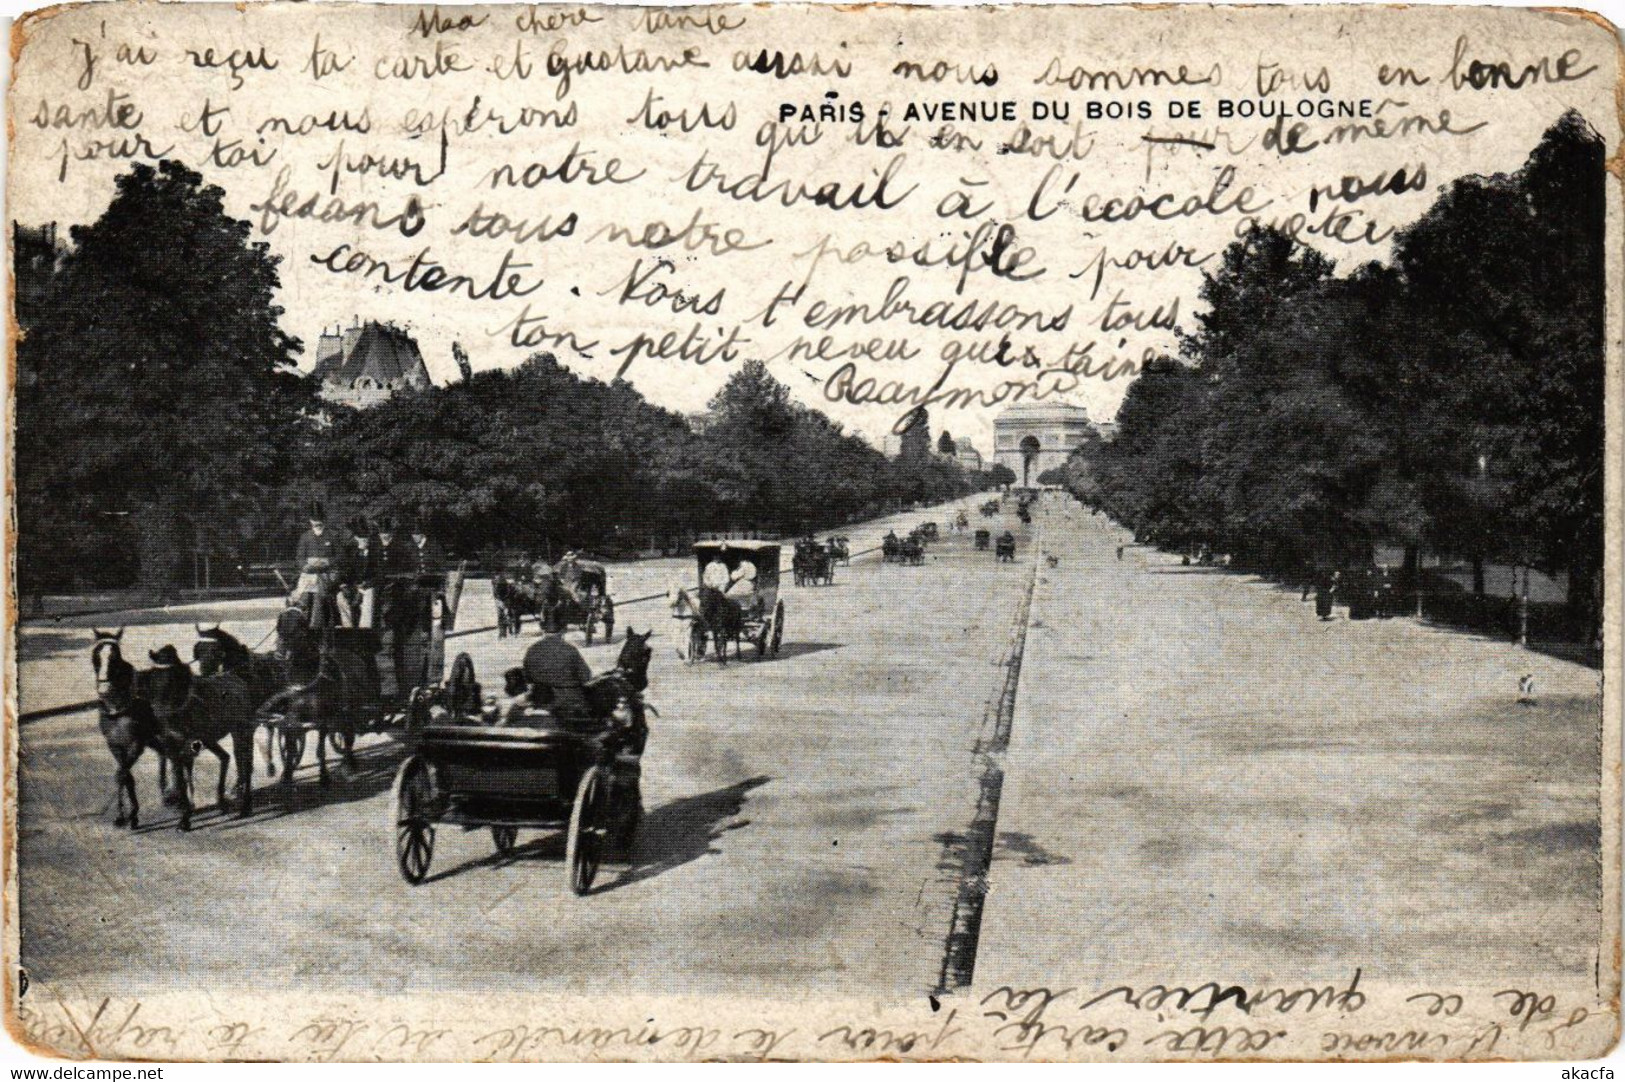 Ma chère tante
J'ai reçu ta carte et Gustave aussi nous sommes tous en bonne
PARIS - AVENUE DU BOIS DE BOULOGNE
sante et nous espérons tous qu'il en soit pour de même
pour toi pour notre travail à l'ecocole nous
fesans tous notre possible pour
contente. Nous t'embrassons tous
ton petit neveu qui t'aime
Raaymond
Je t'envoie cette carte pour te demandé si tu te rappelle
de ce quartier là
akacfa
delcampe.net